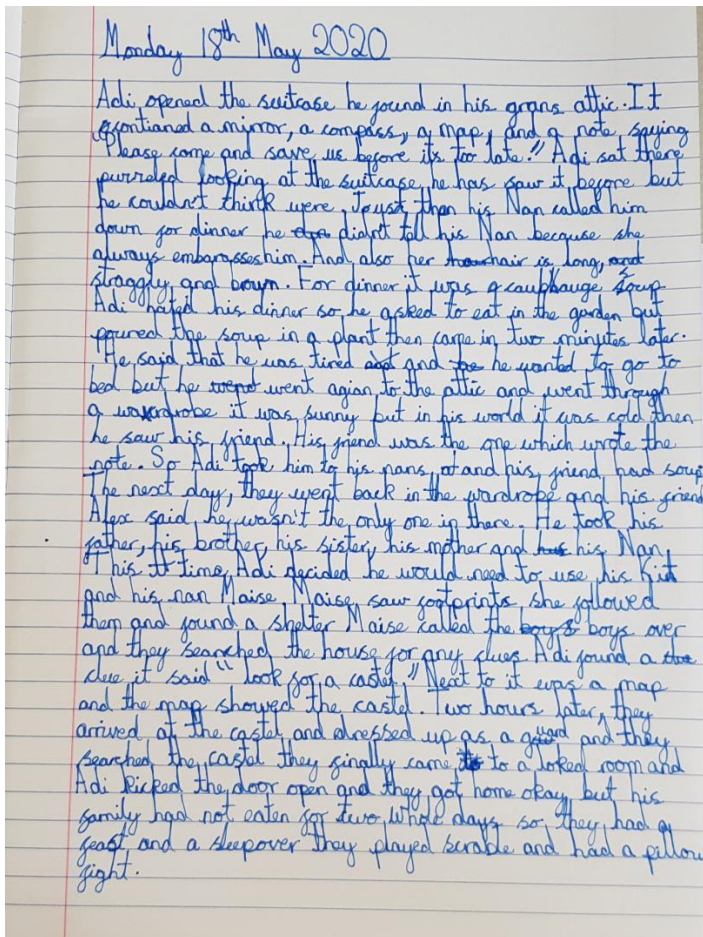 Monday 18th May 2020
Adi opened the suitcase he found in his grans attic. It
contianed a mirror, a compass, a map, and a note saying
"Please come and save us before its too late." Adi sat there
purreled looking at the suitcase he has saw it before but
he couldn't think were. Joust than his Nan called him
down for dinner he didn't tell his Nan because she
always embarasses him. And also her hair is long,
straggly and brown. For dinner it was a caubbauge soup
Adi hated his dinner so he asked to eat in the garden but
poured the soup in a plant then came in two minutes later.
He said that he was tired and he wanted to go to
bed but he went agian to the attic and went through
a wardrobe it was sunny but in his world it was cold then
he saw his friend. His friend was the one which wrote the
note. So Adi took him to his nans, and his friend had soup
The next day, they went back in the wardrope and his friend
Alex said, he wasn't the only one in there. He took his
father, his brother, his sister, his mother and his Nan
This time, Adi decided he would need to use his kit
and his nan Maise Maise saw footprints she followed
them and found a shelter Maise called the boys over
and they searched the house for any clues Adi found a
clue it said "look for a castel," Next to it was a map
and the map showed the castel. Two hours later, they
arrived at the castel and dressed up as a guard and they
searched the castel they finally came to a loked room and
Adi kicked the door open and they got home okay but his
family had not eaten for two whole days so they had a
feast and a sleepover they played scrable and had a pillow
fight.